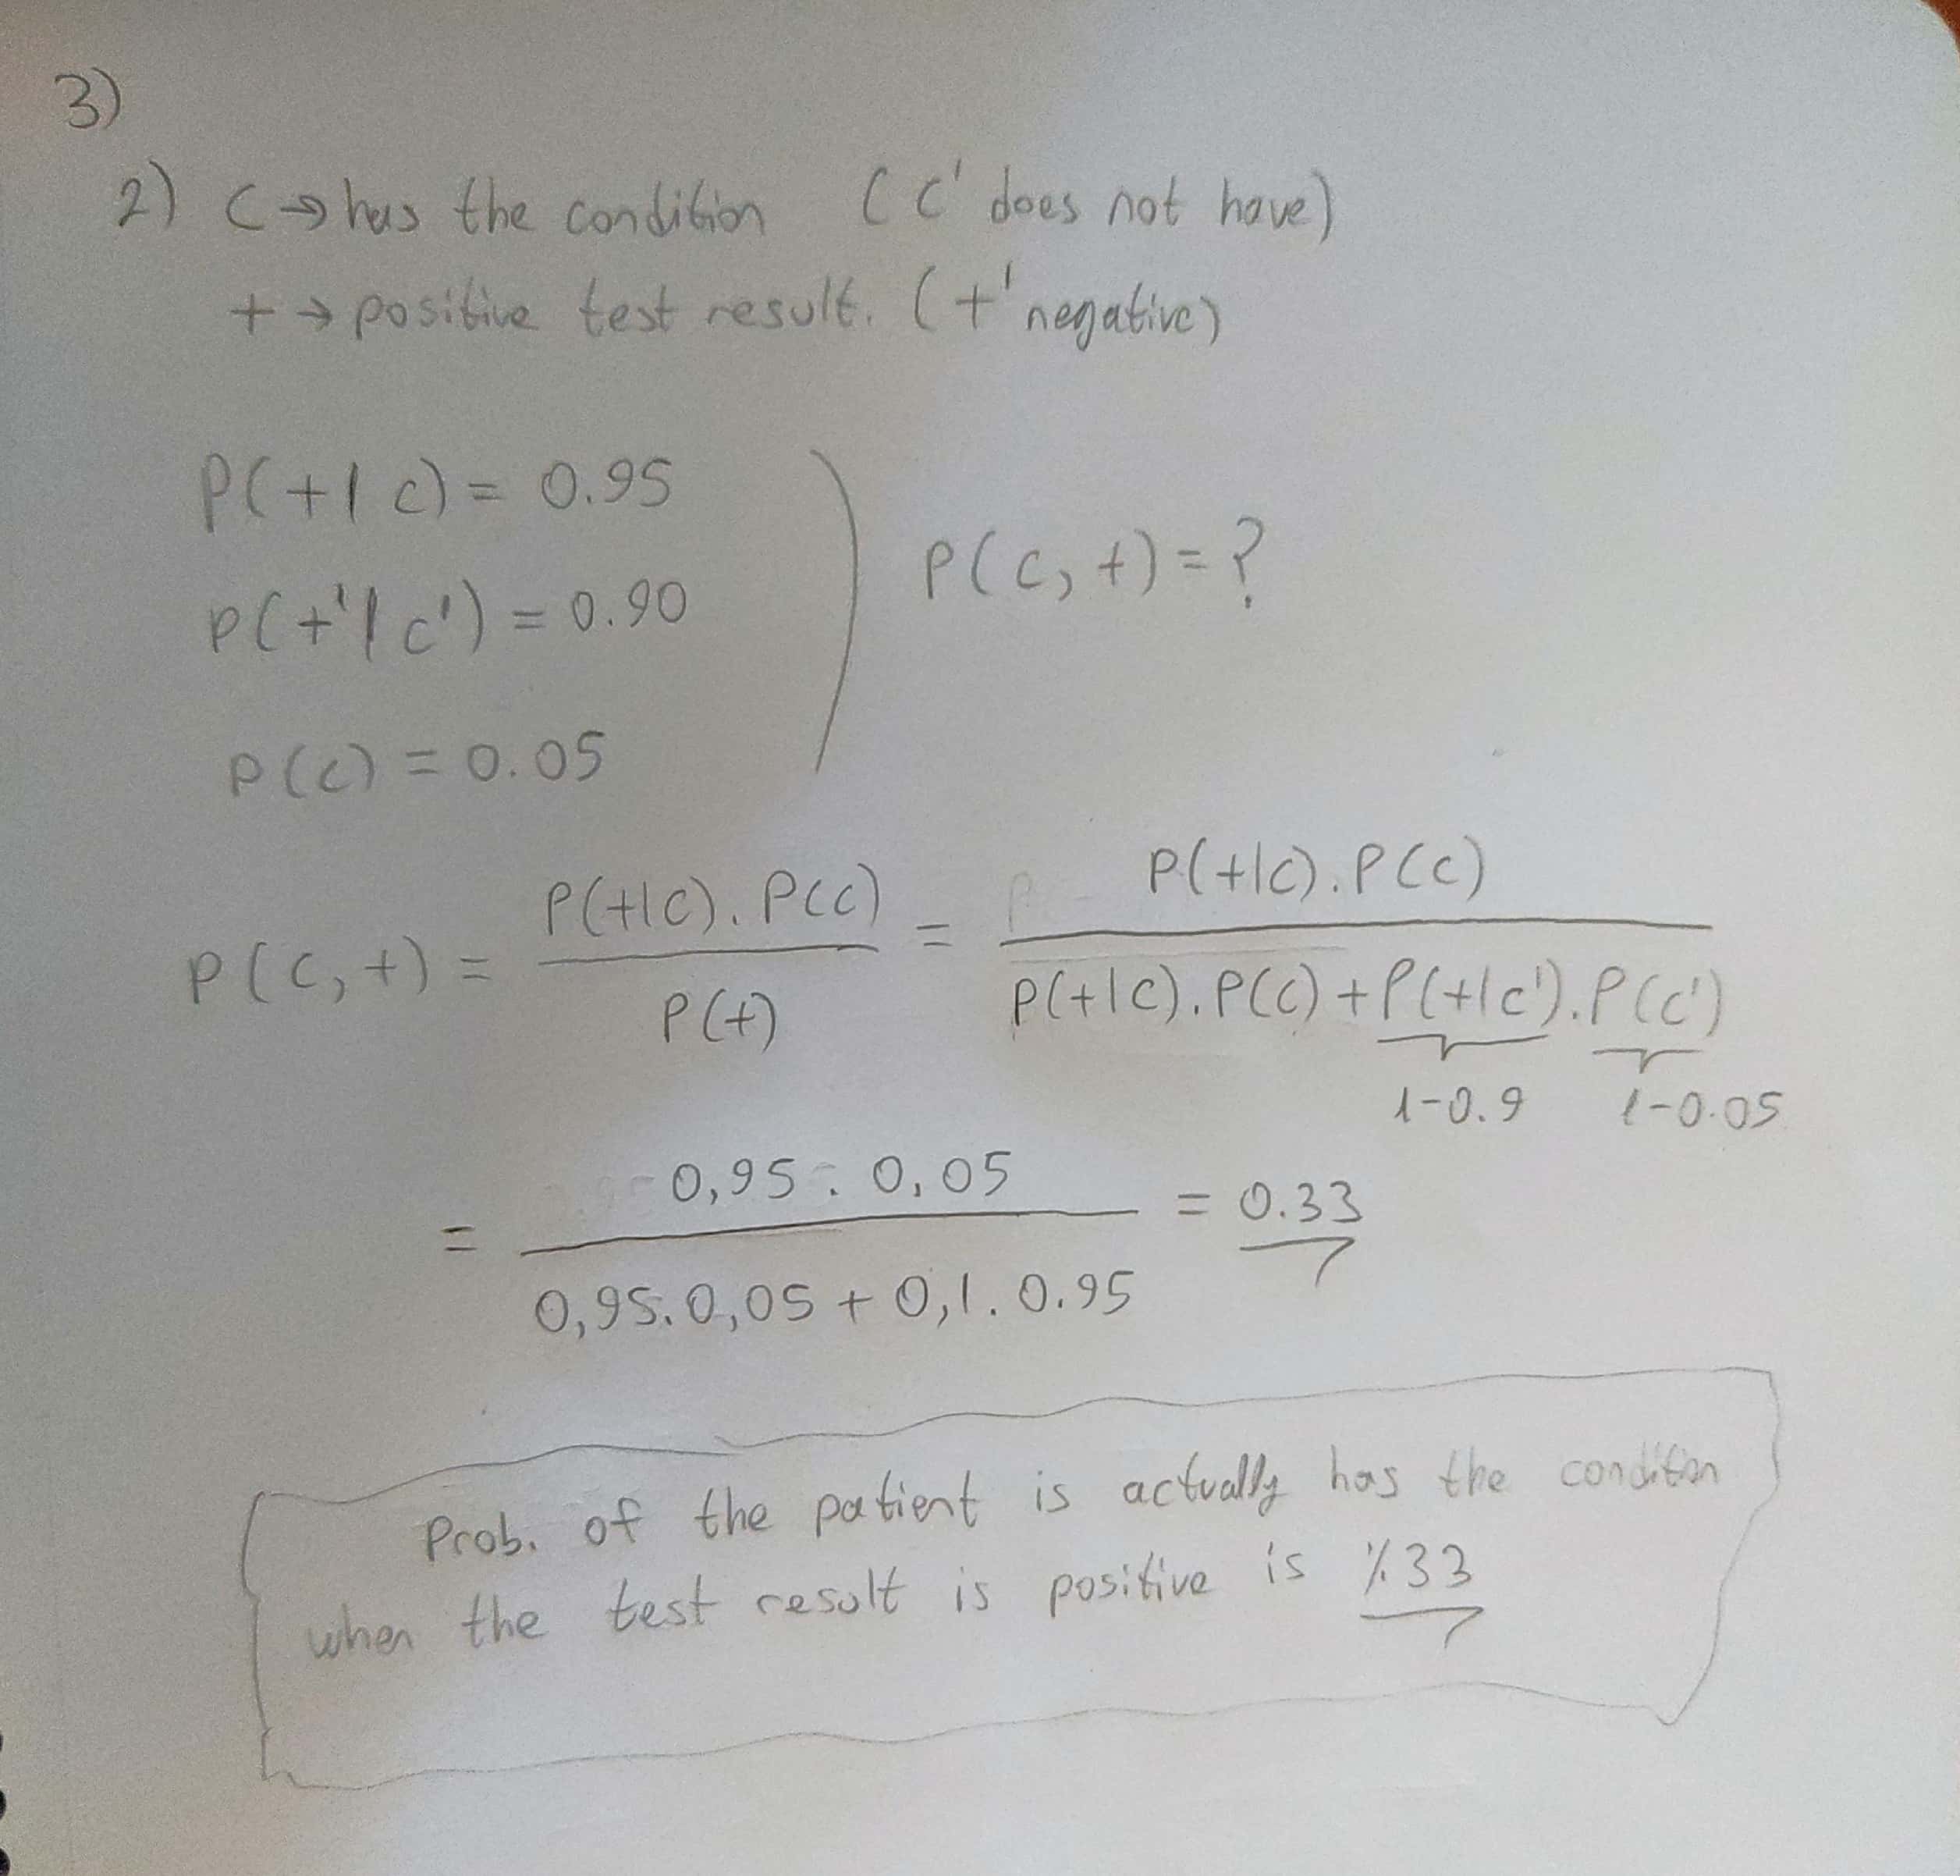 3)
2) C → has the condition (C' does not have)
+ → positive test result. (+' negative)
P(+|C) = 0.95
P(C,+) = ?
P(+'|C') = 0.90
P(C) = 0.05
P(C,+) = P(+|C).P(C) / P(+) = P(+|C).P(C) / P(+|C).P(C)+P(+|C').P(C')
1-0.9 1-0.05
= 0,95.0,05 / 0,95.0,05+0,1.0.95 = 0.33
Prob. of the patient is actually has the condition
when the test result is positive is %33